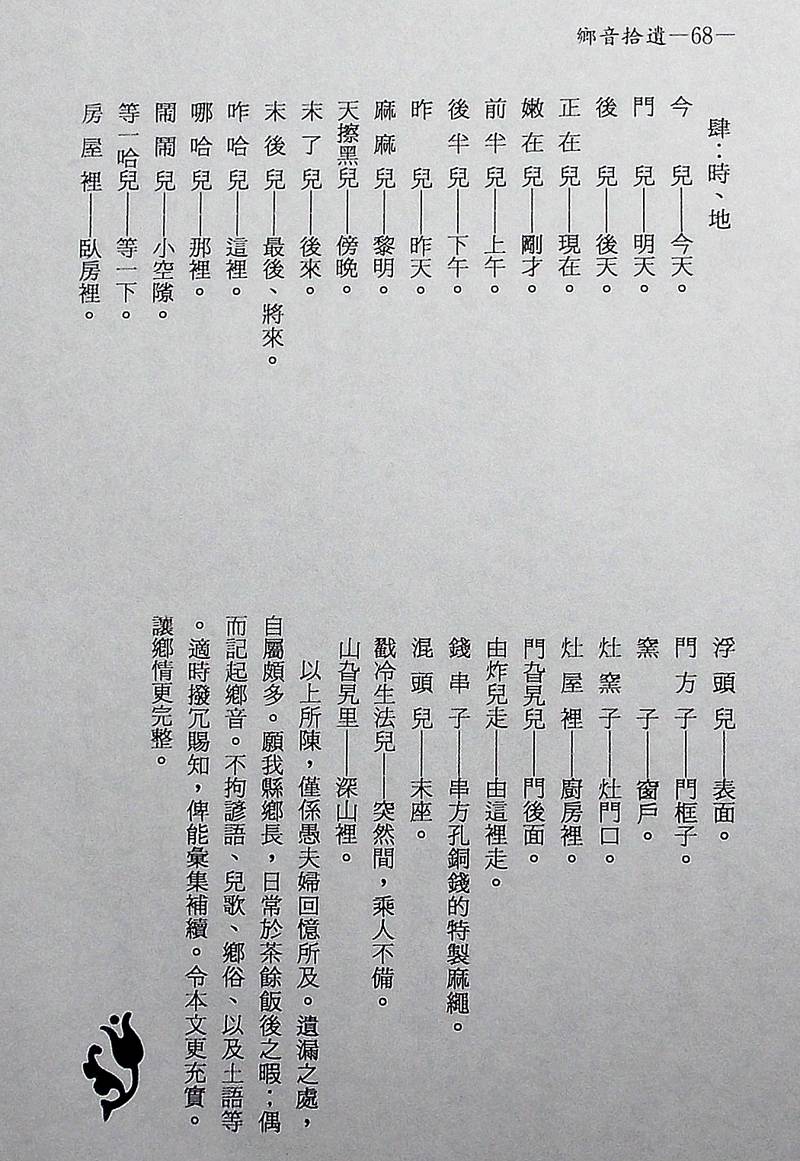 鄉音拾遺—68—
肆：時、地
今兒——今天。
門兒——明天。
後兒——後天。
正在兒——現在。
嫩在兒——剛才。
前半兒——上午。
後半兒——下午。
昨兒——昨天。
麻麻兒——黎明。
天擦黑兒——傍晚。
末了兒——後來。
末後兒——最後、將來。
咋哈兒——這裡。
哪哈兒——那裡。
鬧鬧兒——小空隙。
等一哈兒——等一下。
房屋裡——臥房裡。
浮頭兒——表面。
門方子——門框子。
窯子——窗戶。
灶窯子——灶門口。
灶屋裡——廚房裡。
門旮旯兒——門後面。
由炸兒走——由這裡走。
錢串子——串方孔銅錢的特製麻繩。
混頭兒——末座。
戳冷生法兒——突然間，乘人不備。
山旮旯里——深山裡。
以上所陳，僅係愚夫婦回憶所及。遺漏之處，
自屬頗多。願我縣鄉長，日常於茶餘飯後之暇；偶
而記起鄉音。不拘諺語、兒歌、鄉俗、以及土語等
。適時撥冗賜知，俾能彙集補續。令本文更充實。
讓鄉情更完整。